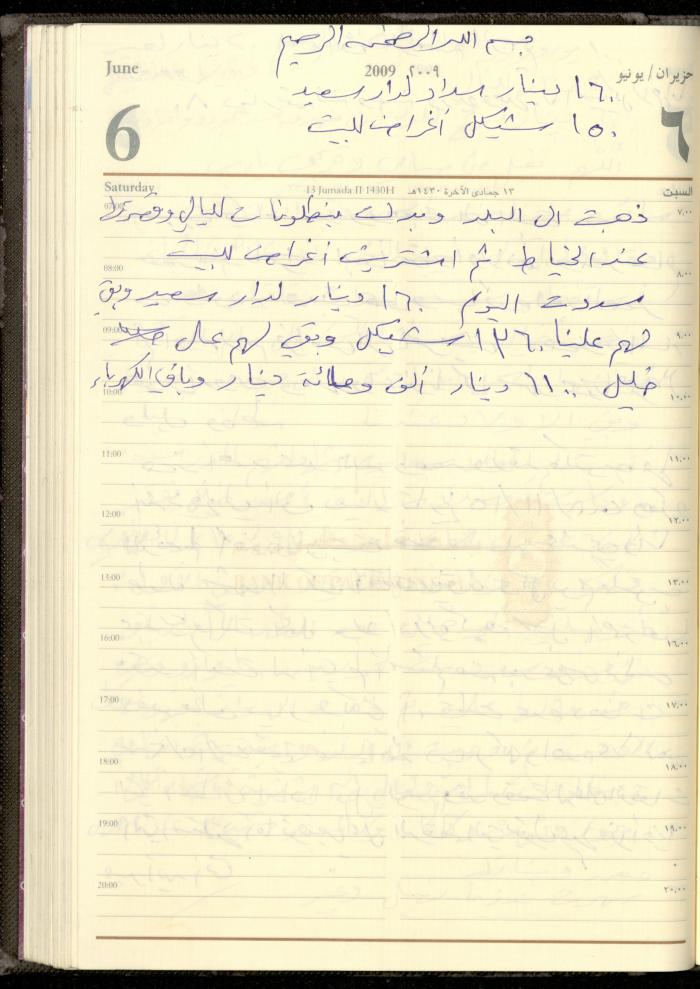 بسم الله الرحمن الرحيم
June 2009 ٢٠٠٩ حزيران / يونيو
١٦٠ دينار سداد لدار سعيد
6 ١٥٠ شيكل أغراض للبيت ٦
Saturday 13 Jumada II 1430H ١٣ جمادى الآخرة ١٤٣٠هـ السبت
07:00 ٧,٠٠
ذهبت الى البلد وبدلت بنطلونات لليالي وقصرتها
عند الخياط ثم اشتريت أغراض للبيت
08:00 ٨,٠٠
سددت اليوم ١٦٠ دينار لدار سعيد وبقي
09:00 ٩,٠٠
لهم علينا ١٣٦٠ شيكل وبقي لهم عال
خليل ١١٠٠ دينار ألف ومائة دينار وباقي الكهرباء
10:00 ١٠,٠٠
11:00 ١١,٠٠
12:00 ١٢,٠٠
13:00 ١٣,٠٠
16:00 ١٦,٠٠
17:00 ١٧,٠٠
18:00 ١٨,٠٠
19:00 ١٩,٠٠
20:00 ٢٠,٠٠